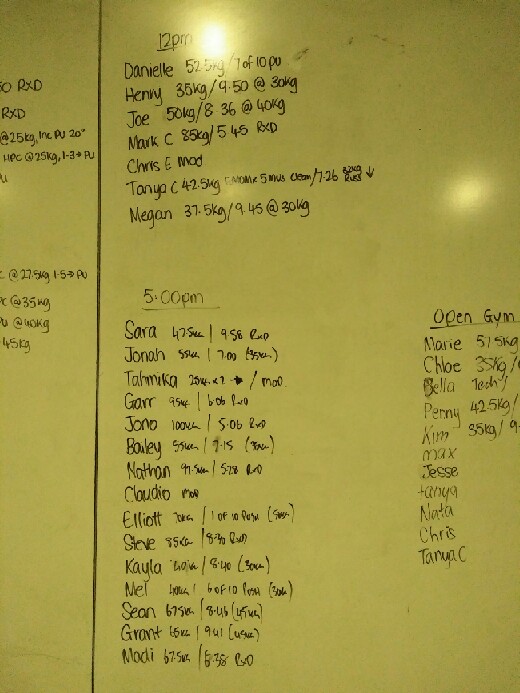 RXD
RXD
@25kg, Inc PU 20"
HPC @25kg, 1-3→PU
PU
@27.5kg 1-5→PU
@35kg
@40kg
45kg
12pm
Danielle 52.5kg/7 of 10 PU
Henny 35kg/9:50 @ 30kg
Joe 50kg/8 36 @ 40kg
Mark C 85kg/5 45 RXD
Chris E Mod
Tanya C 42.5kg 5 mins clean/7.26 ↓
Megan 37.5kg/9.45 @ 30kg
5:00pm
Sara 47.5kg | 9.58 RxD
Jonah 55kg | 7.00 (35kg)
Tahmika / mod
Garr 95kg | 6.06 RxD
Jono 100kg | 5.06 RxD
Bailey 55kg | 7.15
Nathan 97.5kg | 5.28 RxD
Claudio mod
Elliott 70kg | 1 of 10 Push
Steve 85kg | 8.30 RxD
Kayla | 8.40 (30kg)
Mel 40kg | 6 of 10 Push (30kg)
Sean 67.5kg | 8.46 (45kg)
Grant 65kg | 9.41 (45kg)
Madi 67.5kg | 8.38 RxD
Open Gym
Marie 51.5kg
Chloe 35kg/
Bella Tech
Penny 42.5kg/
Kim 35kg/9
max
Jesse
tanya
Nata
Chris
Tanya C